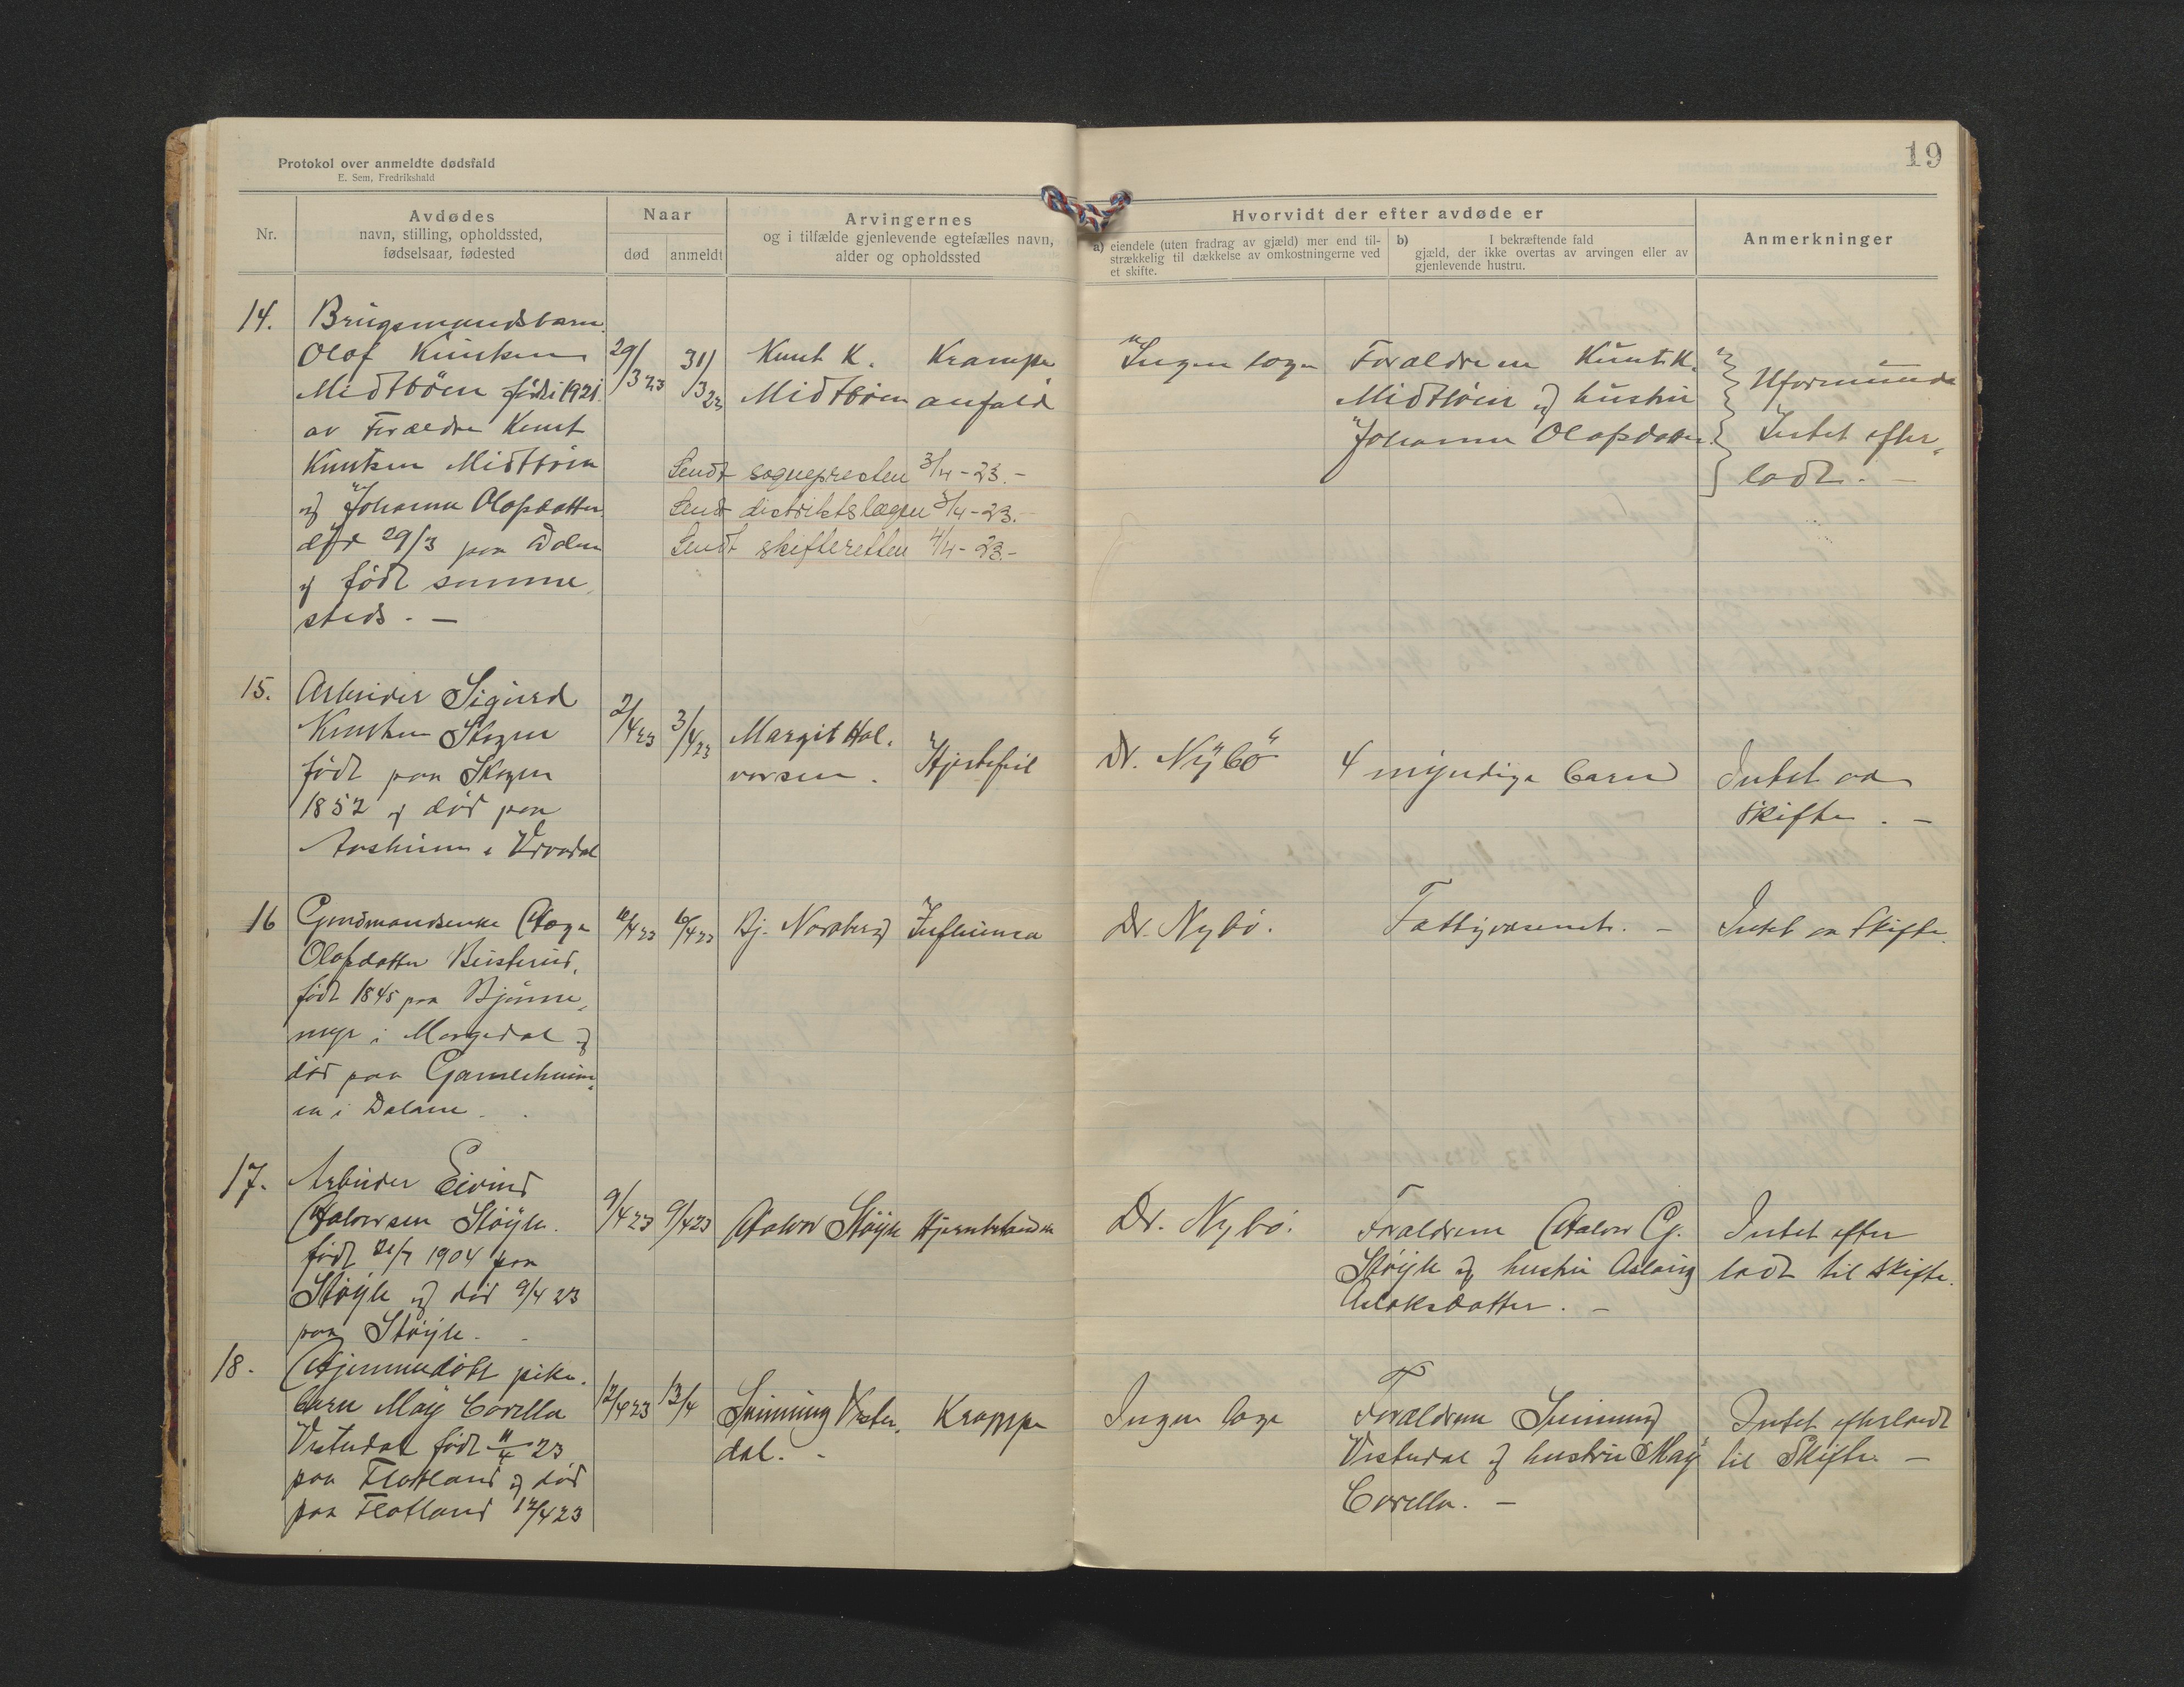 Protokol over anmeldte dødsfald
E. Sem, Fredrikshald
19
Nr.
Avdødes
navn, stilling, opholdssted,
fødselsaar, fødested
Naar
død
anmeldt
Arvingernes
og i tilfælde gjenlevende egtefælles navn,
alder og opholdssted
Hvorvidt der efter avdøde er
a) eiendele (uten fradrag av gjæld) mer end til-
strækkelig til dækkelse av omkostningerne ved
et skifte.
b) I bekræftende fald
gjæld, der ikke overtas av arvingen eller av
gjenlevende hustru.
Anmerkninger
14.
Brugsmandsbarn
Olaf Knutsen
Midtbøen født i 1921.
av Forældre Knut
Knutsen Midtbøen
og Johanne Olafsdatter
død 29/3 paa Dalen
og født samme
steds. —
29/3 23
31/3 23
Knut K.
Midtbøen
Krampe
anfald
Sendt sognepresten 3/4-23.-
Sendt distriktslægen 3/4-23.
Sendt skifteretten 4/4-23.-
Ingen læge
Forældrene Knut K.
Midtbøen og hustru
Johanne Olafsdatter.
Uformuende
Intet efter
ladt. —
15.
Arbeider Sigurd
Knutsen Skogen
født paa Skogen
1852 og død paa
i Vraadal
2/4 23
3/4 23
Margit Hal-
vorsen.
Hjertefeil
Dr. Nybö
4 myndige barn
Intet aa
skifte. —
16
Gaardmandsenke Aase
Olafsdatter
født 1845 paa Bjønne-
myr i Morgedal og
død paa
en i Dalane.
6/4 23
6/4 23
Bj. Nordberg
Influensa
Dr. Nybö.
Fattigvæsenet. —
Intet aa skifte.
17.
Arbeider Eivind
Halvorsen Støyle.
født 21/7 1904 paa
Støyle og død 9/4 23
paa Støyle.
9/4 23
9/4 23
Halvor Støyle
Dr. Nybö.
Forældrene Halvor G.
Støyle og hustru Aslaug
Aslaksdatter. —
Intet efter
ladt til skifte.
18.
Hjemmedøbt pike-
barn May Corella
Vistedal født 11/4 23
paa Flatland og død
paa Flatland 12/4 23
12/4 23
13/4
dal. -
Krampe
Ingen læge
Forældrene
Vistedal og hustru May
Corella. —
Intet efterladt
til Skifte —